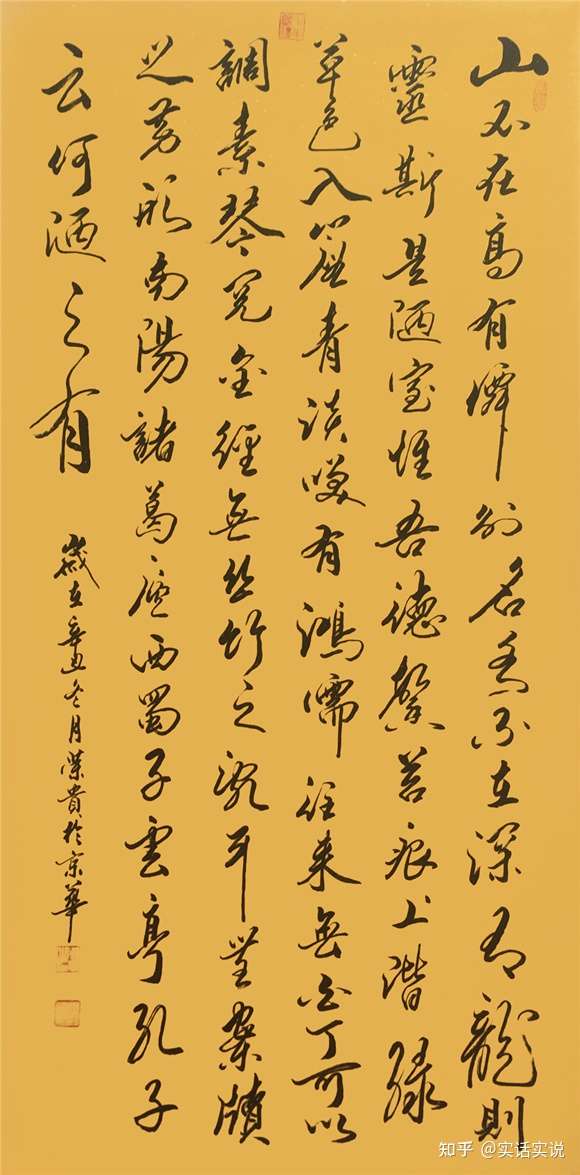 山不在高有僊则名水不在深有龍則
靈斯是陋室惟吾德馨苔痕上階緑
草色入簾青談咲有鴻儒往来無白丁可以
調素琴閲金經無丝竹之乱耳無案牘
之劳形南陽諸葛廬西蜀子雲亭孔子
云何陋之有
歲在辛丑冬月榮貴於京華
知乎 @实话实说